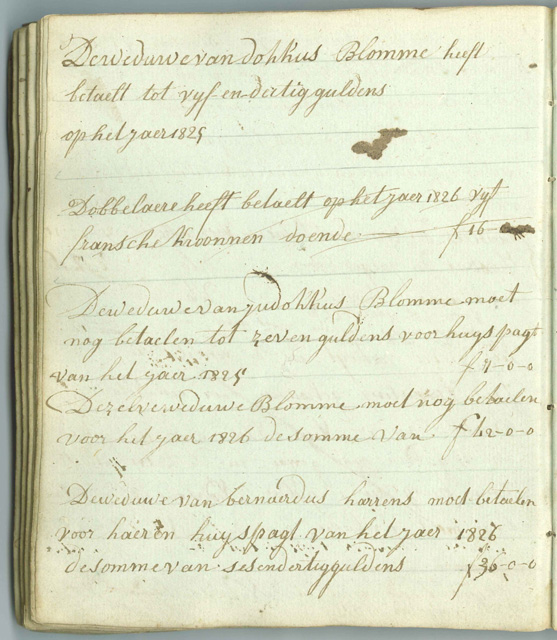 De weduwe van dokkus Blomme heeft
betaelt tot vyf-en-dertig guldens
op het jaer 1825
Dobbelaere heeft betaelt op het jaer 1826 vyf
fransche kroonnen doende f 16
De weduwe van judokkus Blomme moet
nog betaelen tot zeven guldens voor huys pagt
van het jaer 1825 f 7-0-0
De zelve weduwe Blomme moet nog betaelen
voor het jaer 1826 de somme van f 42-0-0
De weduwe van bernaerdus harrens moet betaelen
voor haeren huys pagt van het jaer 1826
de somme van sesendertig guldens f 36-0-0